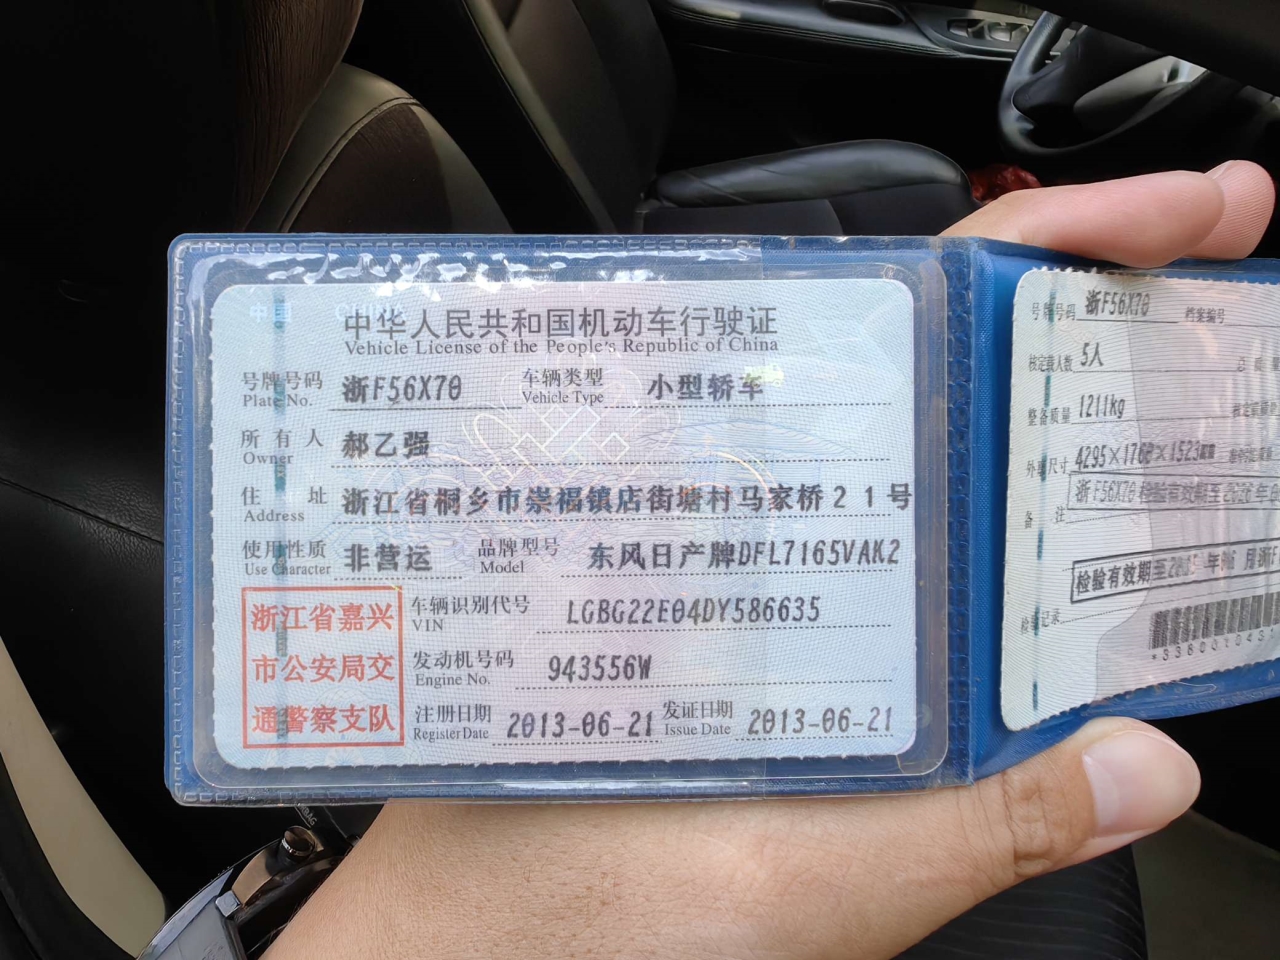 中华人民共和国机动车行驶证
Vehicle License of the People's Republic of China
号牌号码 浙F56X70 车辆类型 小型轿车
Plate No. Vehicle Type
所有人 郝乙强
Owner
住址 浙江省桐乡市崇福镇店街塘村马家桥21号
Address
使用性质 非营运 品牌型号 东风日产牌DFL7165VAK2
Use Character Model
浙江省嘉兴
市公安局交
通警察支队
车辆识别代号 LGBG22E04DY586635
VIN
发动机号码 943556W
Engine No.
注册日期 2013-06-21 发证日期 2013-06-21
Register Date Issue Date
号牌号码 浙F56X70 档案编号
核定载人数 5人 总质量
整备质量 1211kg
外廓尺寸 4295×1768×1523mm
备注 浙F56X70
检验有效期至
检验记录